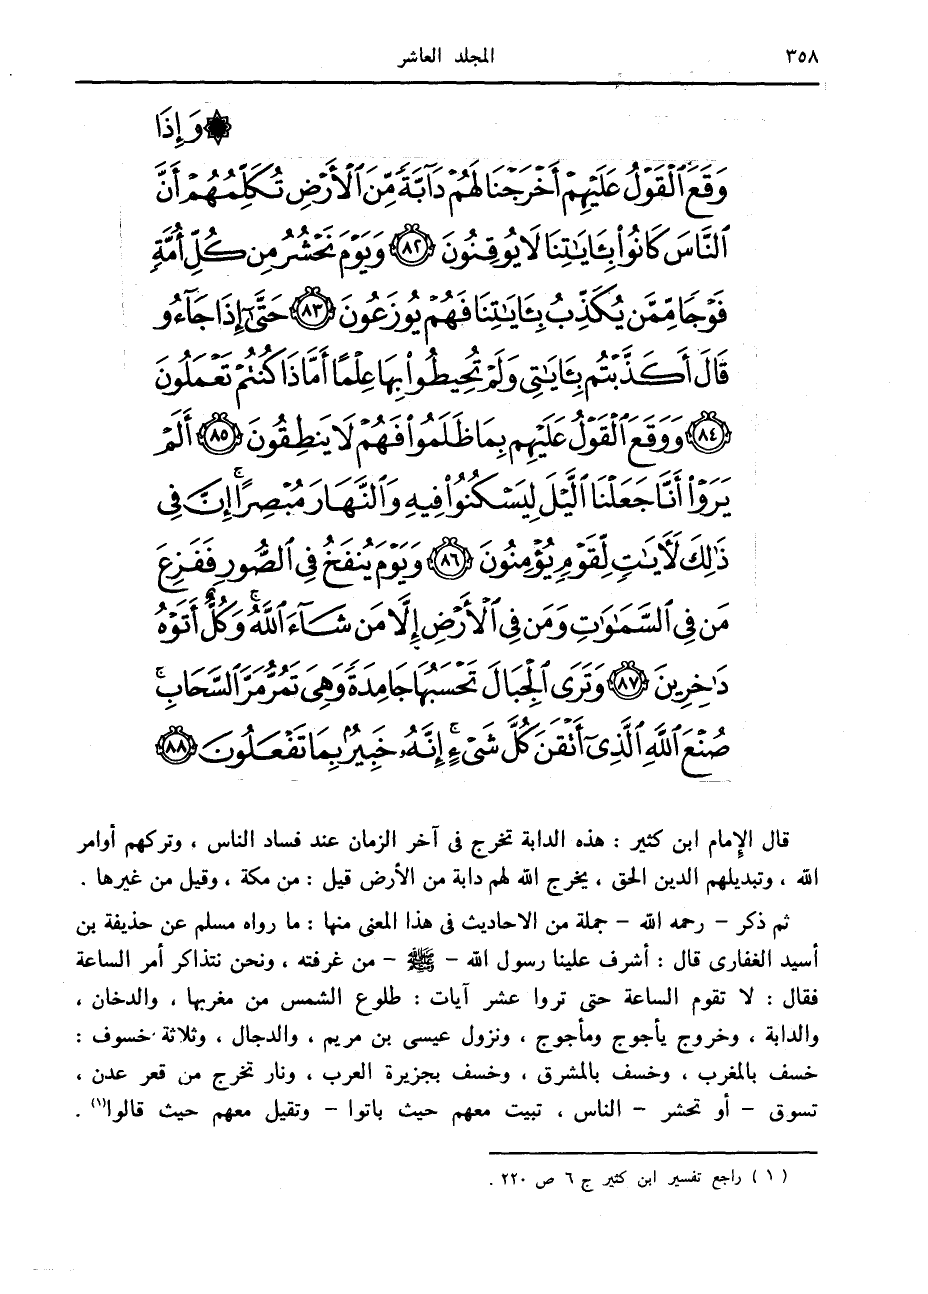 ٣٥٨ المجلد العاشر
۞ وَإِذَا
وَقَعَ ٱلْقَوْلُ عَلَيْهِمْ أَخْرَجْنَا لَهُمْ دَآبَّةً مِّنَ ٱلْأَرْضِ تُكَلِّمُهُمْ أَنَّ
ٱلنَّاسَ كَانُوا۟ بِـَٔايَـٰتِنَا لَا يُوقِنُونَ ﴿٨٢﴾ وَيَوْمَ نَحْشُرُ مِن كُلِّ أُمَّةٍ
فَوْجًا مِّمَّن يُكَذِّبُ بِـَٔايَـٰتِنَا فَهُمْ يُوزَعُونَ ﴿٨٣﴾ حَتَّىٰٓ إِذَا جَآءُو
قَالَ أَكَذَّبْتُم بِـَٔايَـٰتِى وَلَمْ تُحِيطُوا۟ بِهَا عِلْمًا أَمَّاذَا كُنتُمْ تَعْمَلُونَ
﴿٨٤﴾ وَوَقَعَ ٱلْقَوْلُ عَلَيْهِم بِمَا ظَلَمُوا۟ فَهُمْ لَا يَنطِقُونَ ﴿٨٥﴾ أَلَمْ
يَرَوْا۟ أَنَّا جَعَلْنَا ٱلَّيْلَ لِيَسْكُنُوا۟ فِيهِ وَٱلنَّهَارَ مُبْصِرًا ۚ إِنَّ فِى
ذَٰلِكَ لَـَٔايَـٰتٍ لِّقَوْمٍ يُؤْمِنُونَ ﴿٨٦﴾ وَيَوْمَ يُنفَخُ فِى ٱلصُّورِ فَفَزِعَ
مَن فِى ٱلسَّمَـٰوَٰتِ وَمَن فِى ٱلْأَرْضِ إِلَّا مَن شَآءَ ٱللَّهُ ۚ وَكُلٌّ أَتَوْهُ
دَٰخِرِينَ ﴿٨٧﴾ وَتَرَى ٱلْجِبَالَ تَحْسَبُهَا جَامِدَةً وَهِىَ تَمُرُّ مَرَّ ٱلسَّحَابِ ۚ
صُنْعَ ٱللَّهِ ٱلَّذِىٓ أَتْقَنَ كُلَّ شَىْءٍ ۚ إِنَّهُۥ خَبِيرٌۢ بِمَا تَفْعَلُونَ ﴿٨٨﴾
قال الإمام ابن كثير : هذه الدابة تخرج فى آخر الزمان عند فساد الناس ، وتركهم أوامر
الله ، وتبديلهم الدين الحق ، يخرج الله لهم دابة من الأرض قيل : من مكة ، وقيل من غيرها .
ثم ذكر – رحمه الله – جملة من الاحاديث فى هذا المعنى منها : ما رواه مسلم عن حذيفة بن
أسيد الغفارى قال : أشرف علينا رسول الله – ﷺ – من غرفته ، ونحن نتذاكر أمر الساعة
فقال : لا تقوم الساعة حتى تروا عشر آيات : طلوع الشمس من مغربها ، والدخان ،
والدابة ، وخروج يأجوج ومأجوج ، ونزول عيسى بن مريم ، والدجال ، وثلاثة خسوف :
خسف بالمغرب ، وخسف بالمشرق ، وخسف بجزيرة العرب ، ونار تخرج من قعر عدن ،
تسوق – أو تحشر – الناس ، تبيت معهم حيث باتوا – وتقيل معهم حيث قالوا(١) .
( ١ ) راجع تفسير ابن كثير ج ٦ ص ٢٢٠ .